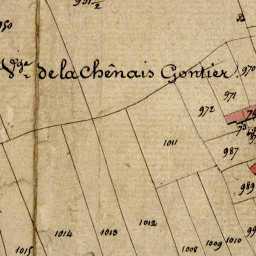 Vge de la Chênais Gontier
970
971
972
1011
987
1012
1013
1014
1015
1008
1009
1010